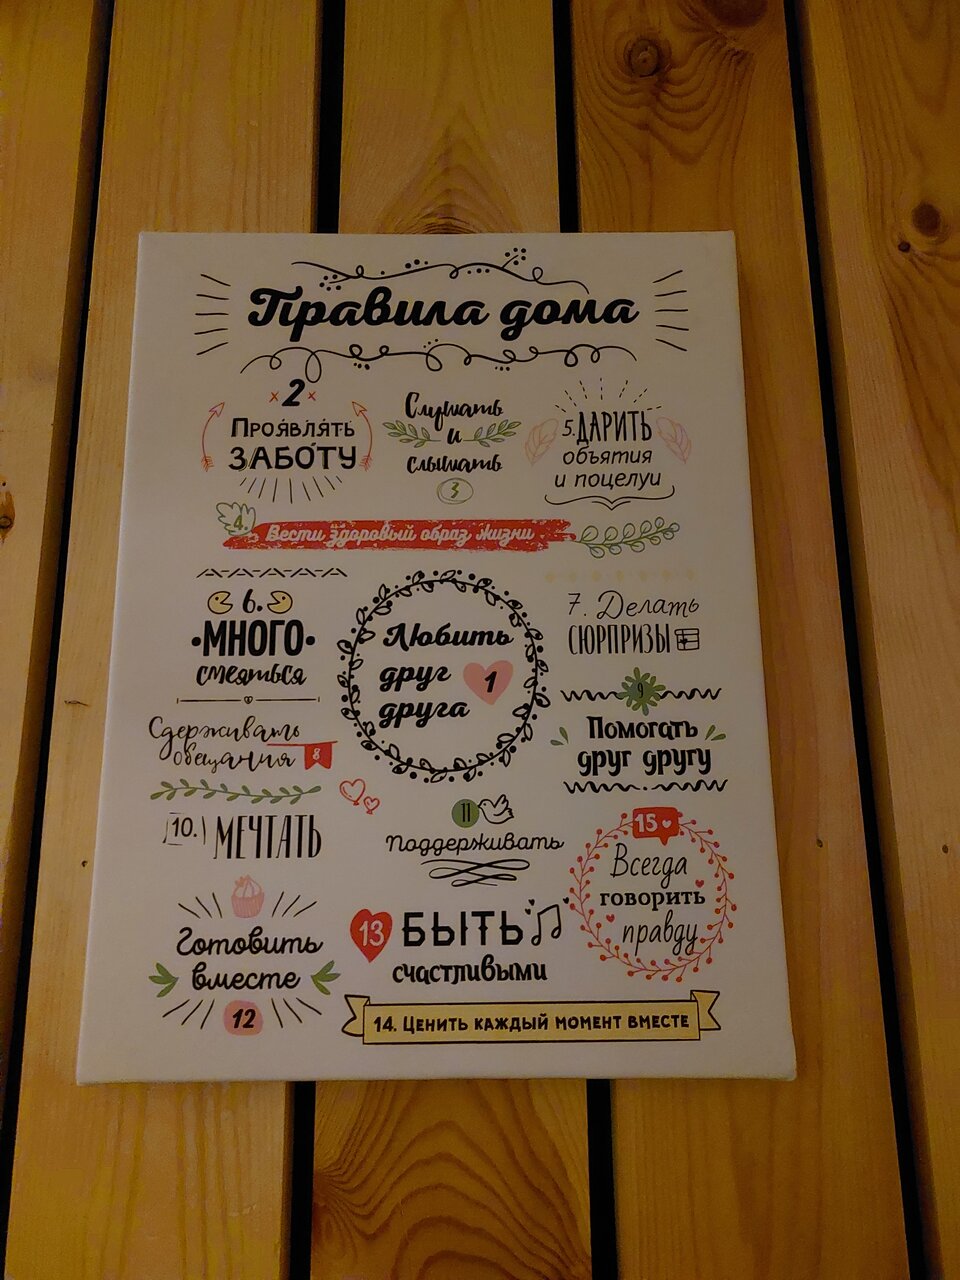 Правила дома
2
Проявлять
ЗАБОТУ
Слушать
и
слышать
3
5. ДАРИТЬ
объятия
и поцелуи
4. Вести здоровый образ жизни
6.
МНОГО
смеяться
Любить
друг
друга
1
7. Делать
СЮРПРИЗЫ
Сдерживать
обещания 8
9
Помогать
друг другу
10. МЕЧТАТЬ
11
Поддерживать
15
Всегда
говорить
правду
Готовить
вместе
12
13 БЫТЬ
счастливыми
14. Ценить каждый момент вместе